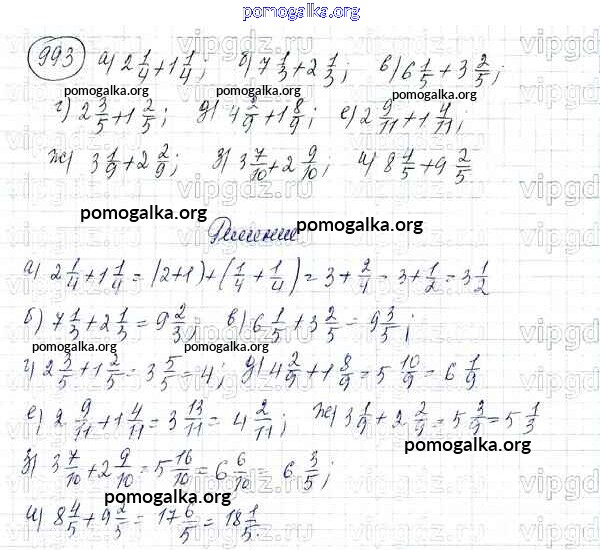 pomogalka.org
993 а) 2 1/4 + 1 1/4; б) 7 1/3 + 2 1/3; в) 6 1/5 + 3 2/5;
pomogalka.org pomogalka.org pomogalka.org
г) 2 3/5 + 1 2/5; д) 4 2/9 + 1 8/9; е) 2 9/11 + 1 4/11;
ж) 3 1/9 + 2 2/9; з) 3 7/10 + 2 9/10; и) 8 4/5 + 9 2/5
pomogalka.org pomogalka.org
Решение
а) 2 1/4 + 1 1/4 = (2+1) + (1/4 + 1/4) = 3 + 2/4 = 3 + 1/2 = 3 1/2
б) 7 1/3 + 2 1/3 = 9 2/3; в) 6 1/5 + 3 2/5 = 9 3/5;
pomogalka.org pomogalka.org pomogalka.org
г) 2 3/5 + 1 2/5 = 3 5/5 = 4; д) 4 2/9 + 1 8/9 = 5 10/9 = 6 1/9
е) 2 9/11 + 1 4/11 = 3 13/11 = 4 2/11; ж) 3 1/9 + 2 2/9 = 5 3/9 = 5 1/3
pomogalka.org
з) 3 7/10 + 2 9/10 = 5 16/10 = 6 6/10 = 6 3/5;
pomogalka.org pomogalka.org
и) 8 4/5 + 9 2/5 = 17 6/5 = 18 1/5.